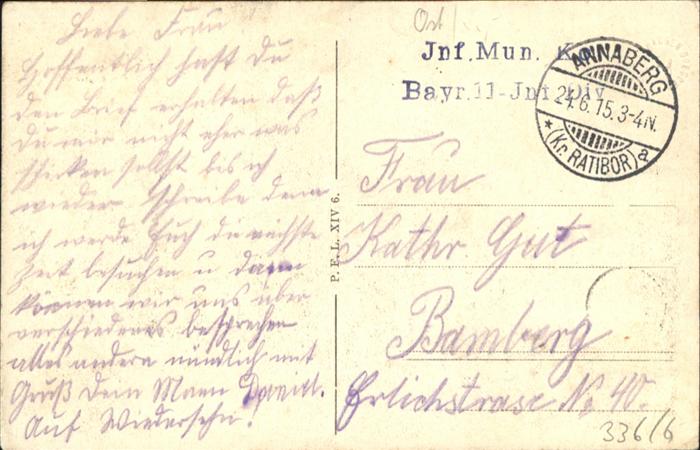 Liebe Frau
Hoffentlich hast Du
den Brief erhalten daß
Du mir nicht eher was
schicken sollst bis ich
wieder schreibe denn
ich werde Euch die nächste
Zeit besuchen u dann
können wir uns über
verschiedenes besprechen
alles andere mündlich mit
Gruß Dein Mann
Auf Wiedersehn!
P. E. L. XIV 6.
Jnf. Mun. K
Bayr. 11-Jnf. Div.
ANNABERG
24.6.15.3-4N.
* (Kr. RATIBOR) a
Frau
Kathr. Gut
Bamberg
Erlichstrase No 40.
336/6